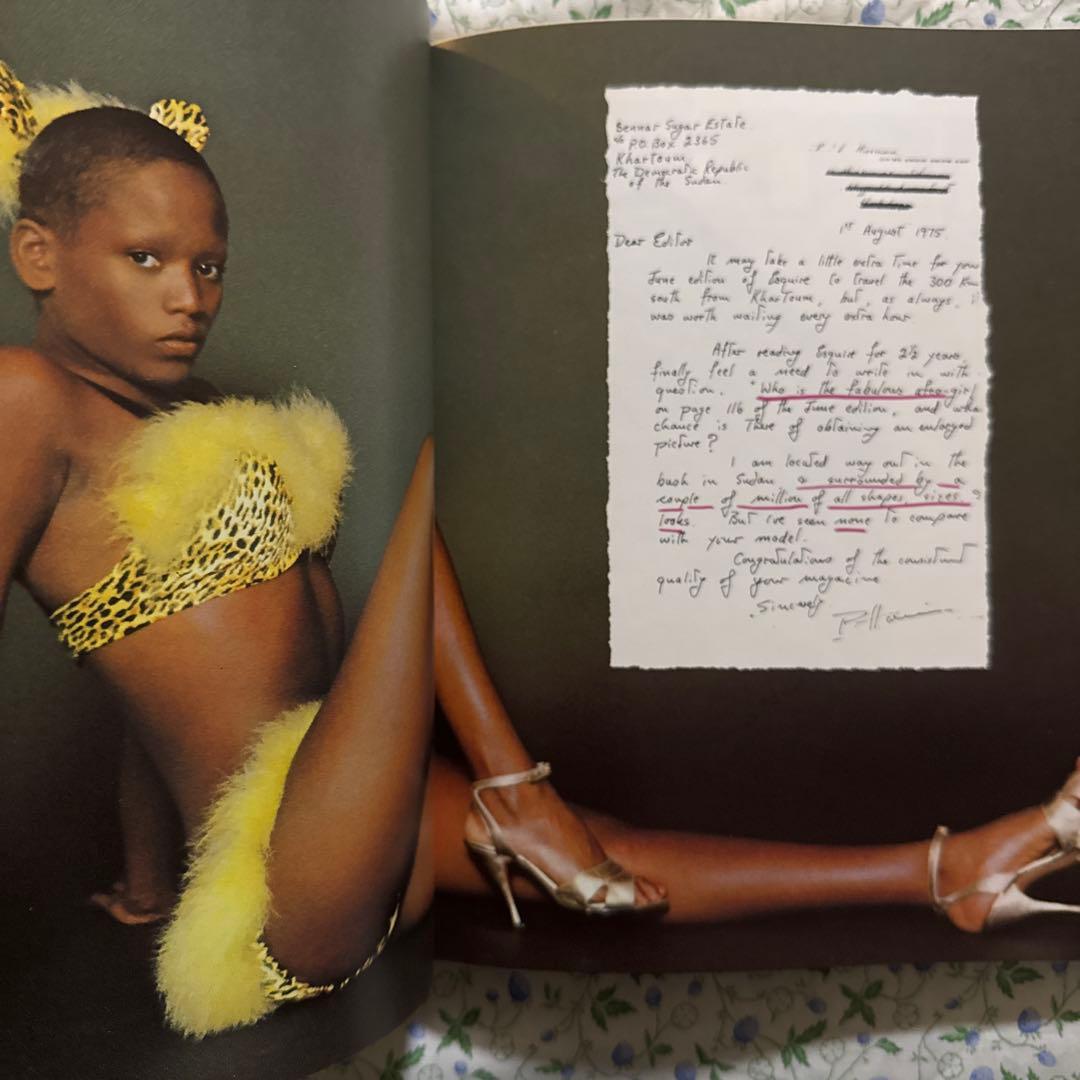 Bennar Sugar Estate
c/o P.O. Box 2365
Khartoum
The Democratic Republic
of the Sudan.
1st August 1975.
Dear Editor
It may take a little extra time for your
June edition of Esquire to travel the 300 Km
south from Khartoum, but, as always,
was worth waiting every extra hour
After reading Esquire for 2½ years,
finally feel a need to write in with
question. "Who is the fabulous afro-girl
on page 116 of the June edition, and what
chance is there of obtaining an enlarged
picture?
I am located way out in the
bush in Sudan surrounded by a
couple of million of all shapes, sizes,
looks. But I've seen none to compare
with your model.
Congratulations of the consistent
quality of your magazine
Sincerely